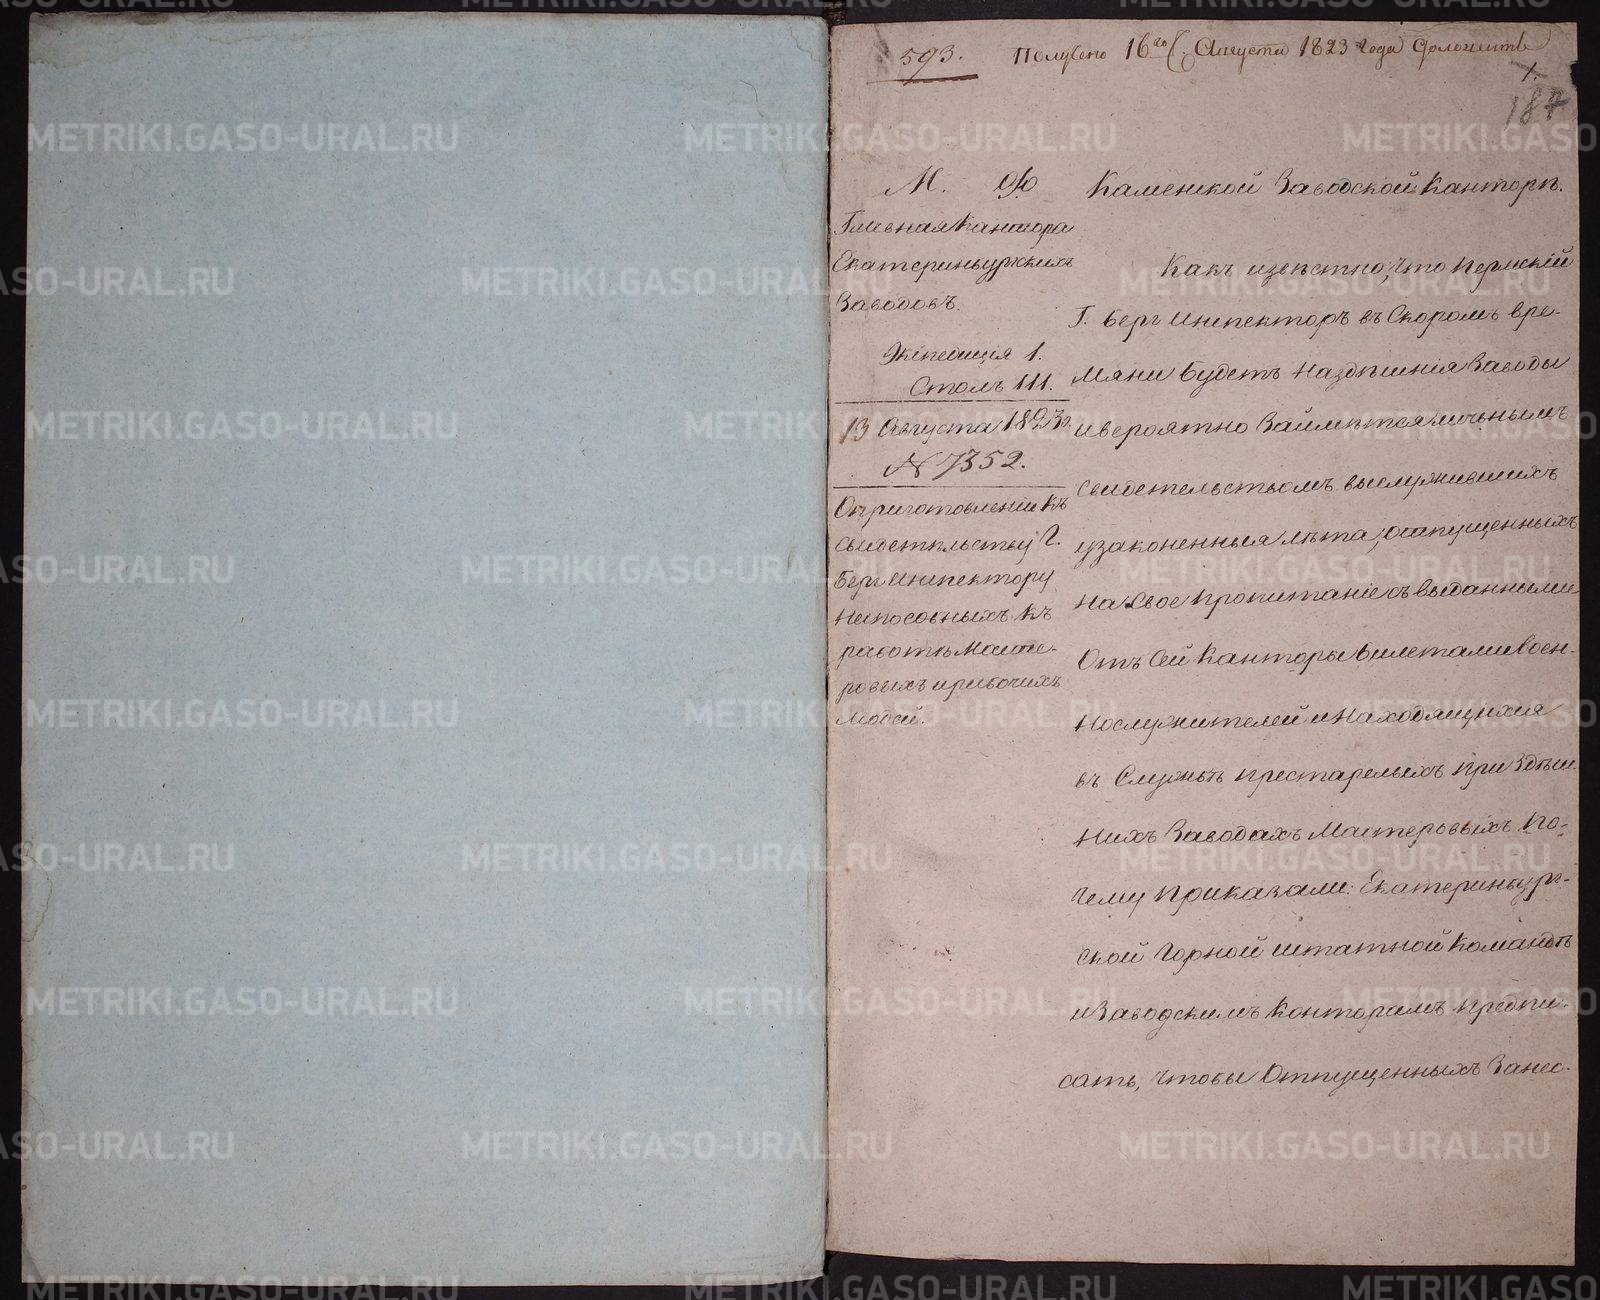 593. Получено 16го Августа 1823 года Доложить
1.
187
М. Ф.
Главная Кантора
Екатеринбургскихъ
Заводовъ.
Экспедиція 1.
Столъ 111.
13 Августа 1823го.
№ 7352.
О приготовленіи къ
свидетельству Г.
Бергъ Инспектору
неспособныхъ къ
работѣ Масте-
ровыхъ и рабочихъ
людей.
Каменской Заводской Канторѣ.
Какъ извѣстно, что Пермскій
Г. Бергъ Инспекторъ въ Скоромъ вре-
мяни будетъ на здѣшнія Заводы
и вероятно Займется личнымъ
свидетельствомъ выслужившихъ
узаконенныя лѣта, отпущенныхъ
на Свое пропитаніе съ выданными
Отъ Сей Канторы билетами воен-
нослужителей и находящихся
въ Службѣ престарелыхъ при Здѣш-
нихъ Заводахъ Мастеровыхъ, По-
чему Приказали: Екатеринбург-
ской Горной штатной Командѣ
и Заводскимъ Конторамъ предпи-
сать, чтобы Отпущенныхъ Занес-
METRIKI.GASO-URAL.RU